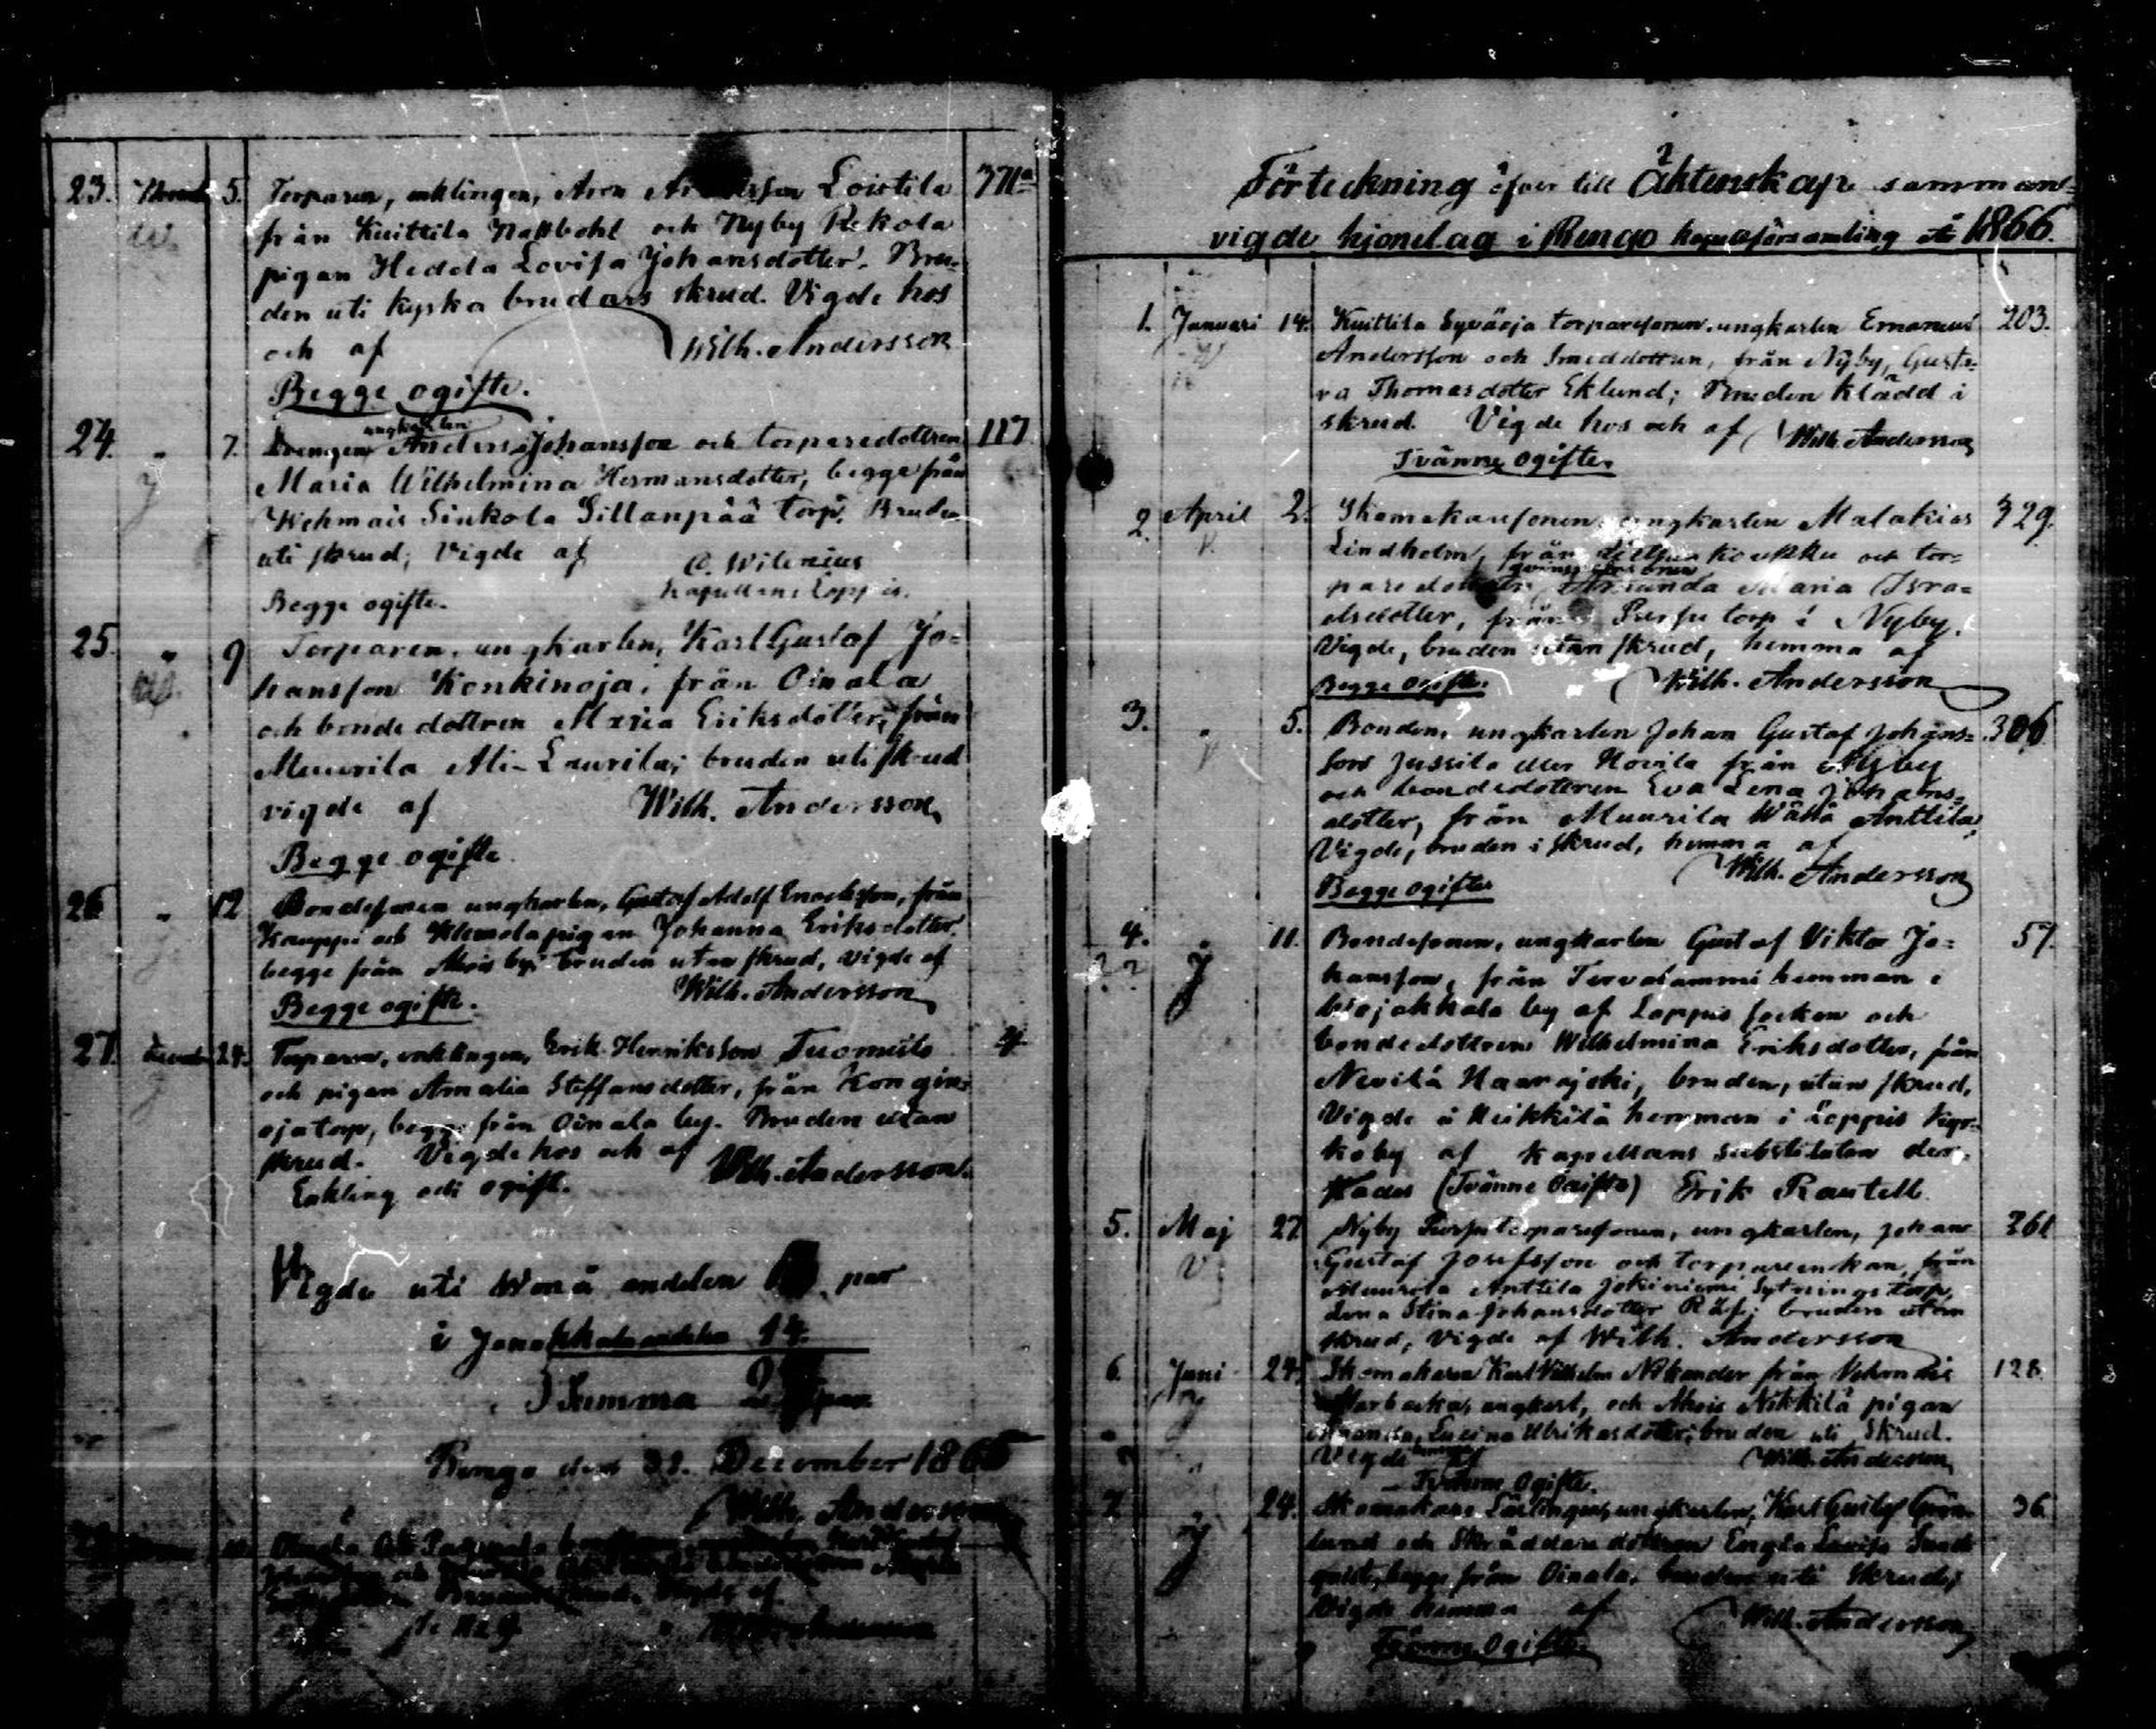 23. 5. Torparen, enklingen, Loistila 371a
från Kuittila Nassbohl och Nyby Rekola
pigan Hedda Lovisa Johansdotter. Bru-
den uti kyska brudars skrud. Vigde hos
och af Wilh. Andersson
Begge ogifte.
ungkarlen
24. " 7. Drengen Anders Johansson och torparedottren 117
Maria Wilhelmina Hermansdotter, begge från
Wehmais Sinkola Sillanpää torp. Bruden
uti skrud; Vigde af C. Wilenius
Begge ogifte. Kapellan i Loppis.
25. " 9 Torparen, ungkarlen, Karl Gustaf Jo-
hansson Konkinoja, från Oinala
och bonde dottren Maria Eriksdotter, från
Muurila Ali-Laurila; bruden uti skrud
vigde af Wilh. Andersson
Begge ogifte
26 " 12 Bondesonen ungkarlen, Gustaf Adolf Enocksson, från
och pigan Johanna Eriksdotter,
begge från by; bruden utan skrud, vigde af
Begge ogifte. Wilh. Andersson
27. 24. Torparen, enklingen, Erik Henriksson Tuomisto
och pigan Amalia Steffansdotter, från Kongin-
oja torp, begge från Oinala by. Bruden utan
skrud. Vigde hos och af Wilh. Andersson.
Enkling och ogift.
Vigde uti Wonå andelen par
i Janakkala andelen 14.
Summa par
Rengo den 31. December 1865
Wilh. Andersson
Förteckning öfver till Äktenskap samman-
vigde hjonelag i Rengo kapellförsamling år 1866.
1. Januari 14. Kuittila Syväoja torparesonen, ungkarlen Emanuel 203.
Andersson och Smeddottren, från Nyby, Gusta-
va Thomasdotter Eklund; Bruden klädd i
skrud. Vigde hos och af Wilh. Andersson
Tvänne ogifte.
2. April 2. Skomakaresonen, ungkarlen Malakias 329.
Lindholm, från koukku och tor-
pare dottren Amanda Maria Isra-
elsdotter, från Pursu torp i Nyby.
Vigde, bruden utan skrud, hemma af
Begge ogifte. Wilh. Andersson
3. " 5. Bonden, ungkarlen Johan Gustaf Johans- 306
son Jussila eller Hovila från Nyby
och bondedottren Eva Lena Johans-
dotter, från Muurila Wähä Anttila,
Vigde, bruden i skrud, hemma af
Begge ogifte Wilh. Andersson
4. " 11. Bondesonen, ungkarlen Gustaf Viktor Jo- 57.
hansson, från Tervalammi hemman i
by af Loppis socken och
bondedottren Wilhelmina Eriksdotter, från
Nevilä Haarajoki, bruden, utan skrud,
Vigde å Heikkilä hemman i Loppis Kyr-
koby af Kapellans substituten der-
stades (Tvänne Ogifte) Erik Rantell.
5. Maj 27 Nyby Pursu torparesonen, ungkarlen, Johan 261
Gustaf Josefsson och torpareenkan, från
Muurila Anttila Jokiniemi Sytningstorp,
Lena Stina Johansdotter bruden utan
skrud, vigde af Wilh. Andersson
6. Juni 24. Skomakaren Karl Vilhelm Nikander från 128.
ungkarl, och Nikkilä pigan
Lucina Ulrikasdotter; bruden uti skrud.
Vigde hemma af Wilh. Andersson
Tvänne Ogifte.
7. 24. Skomakare Lärlingen, ungkarlen, Karl Gustaf Grön- 36
lund och Skräddare dottren Engla Lovisa
begge från Oinala, bruden uti skrud,
Vigde hemma af Wilh. Andersson
Tvänne Ogifte.